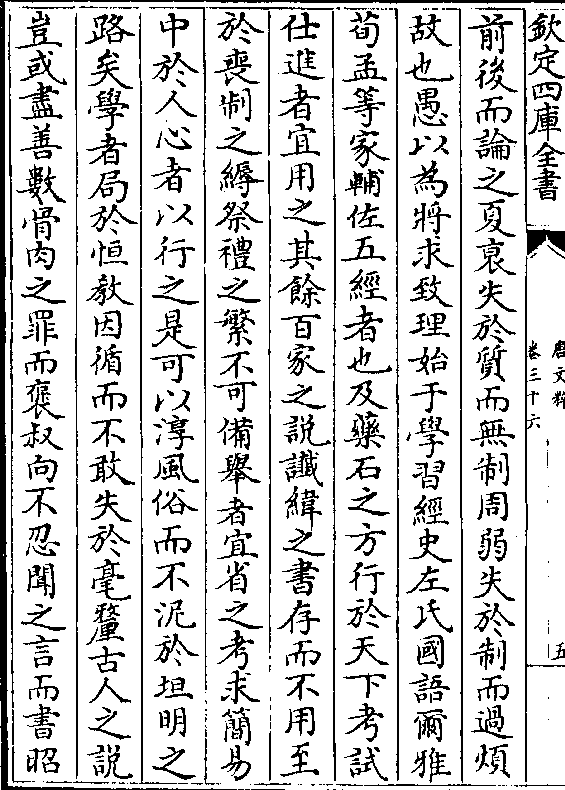 欽定四庫全書
唐文粹
卷三十六
五
前後而論之夏衰失於質而無制周弱失於制而過煩
故也愚以為將求致理始于學習經史左氏國語爾雅
荀孟等家輔佐五經者也及藥石之方行於天下考試
仕進者宜用之其餘百家之說讖緯之書存而不用至
於喪制之縟祭禮之繁不可備舉者宜省之考求簡易
中於人心者以行之是可以淳風俗而不泥於坦明之
路矣學者局於恒教因循而不敢失於毫釐古人之說
豈或盡善數骨肉之罪而褒叔向不忍聞之言而書昭